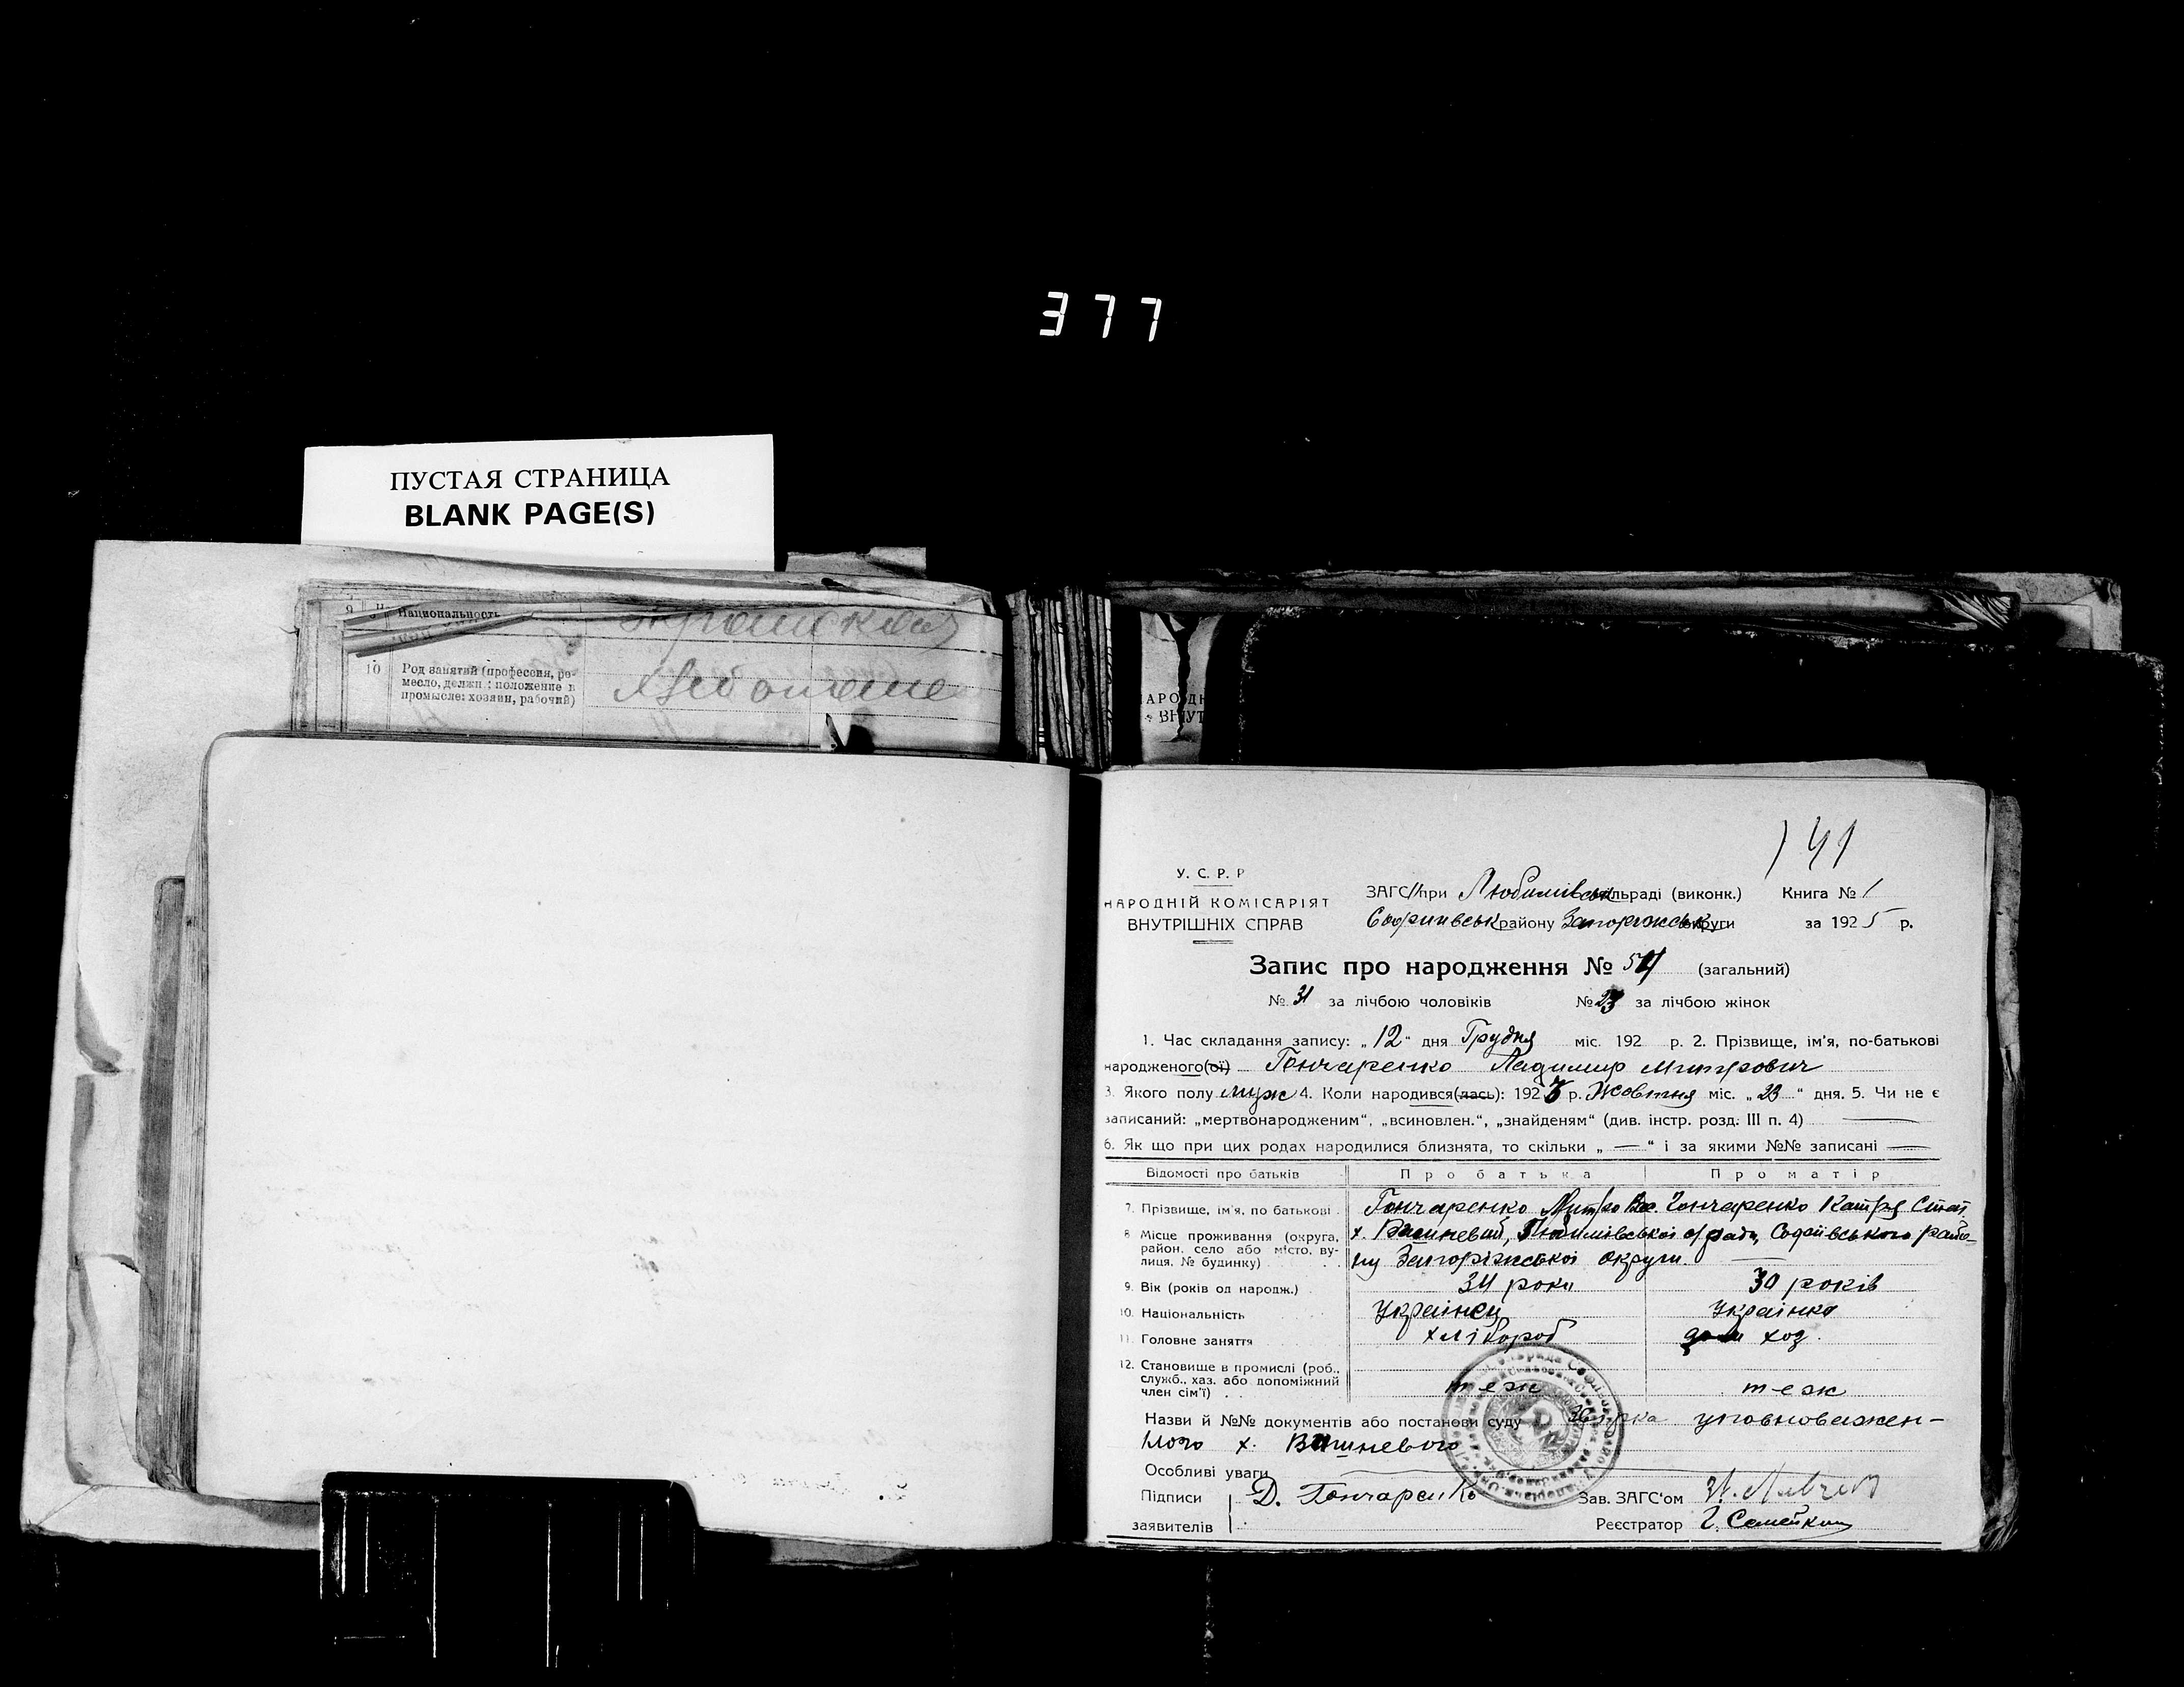 377
ПУСТАЯ СТРАНИЦА
BLANK PAGE(S)
9 Национальность
10 Род занятий (профессия, ре-
месло, должн.: положение в
промысле: хозяин, рабочий)
НАРОДН
ВНУТ
141
У. С. Р. Р
НАРОДНІЙ КОМІСАРІЯТ
ВНУТРІШНІХ СПРАВ
ЗАГС при Любимівськ сільраді (виконк.) Книга № 1
Софиївськ району Запоріжськ округи за 1925 р.
Запис про народження № 54 (загальний)
№ 31 за лічбою чоловіків № 23 за лічбою жінок
1. Час складання запису: „12“ дня Грудня міс. 192 р. 2. Прізвище, ім'я, по-батькові
народженого(ої) Гончаренко Ладимир Митрович
3. Якого полу муж 4. Коли народився(лась): 192 р. Жовтня міс. „23“ дня. 5. Чи не є
записаний: „мертвонародженим“, „всиновлен.“, „знайденям“ (див. інстр. розд. III п. 4)
6. Як що при цих родах народилися близнята, то скільки „—“ і за якими №№ записані —
Відомості про батьків Про батька Про матір
7. Прізвище, ім'я, по батькові Гончаренко Митро Гончаренко Катря Степ.
8 Місце проживання (округа, район, село або місто, вулиця, № будинку) х. Вишневий, Любимівської с/ради, Софиївського райо-
ну Запоріжської округи.
9. Вік (років од народж.) 34 роки 30 років
10. Національність Українец Українка
11. Головне заняття хлібороб дом хоз.
12. Становище в промислі (роб., служб., хаз. або допоміжний член сім'ї) теж теж
Назви й №№ документів або постанови суду уповноважен-
ного х. Вишневого
Особливі уваги
Підписи Д. Гончаренко Зав. ЗАГС'ом
заявителів Реєстратор Г. Семейкин